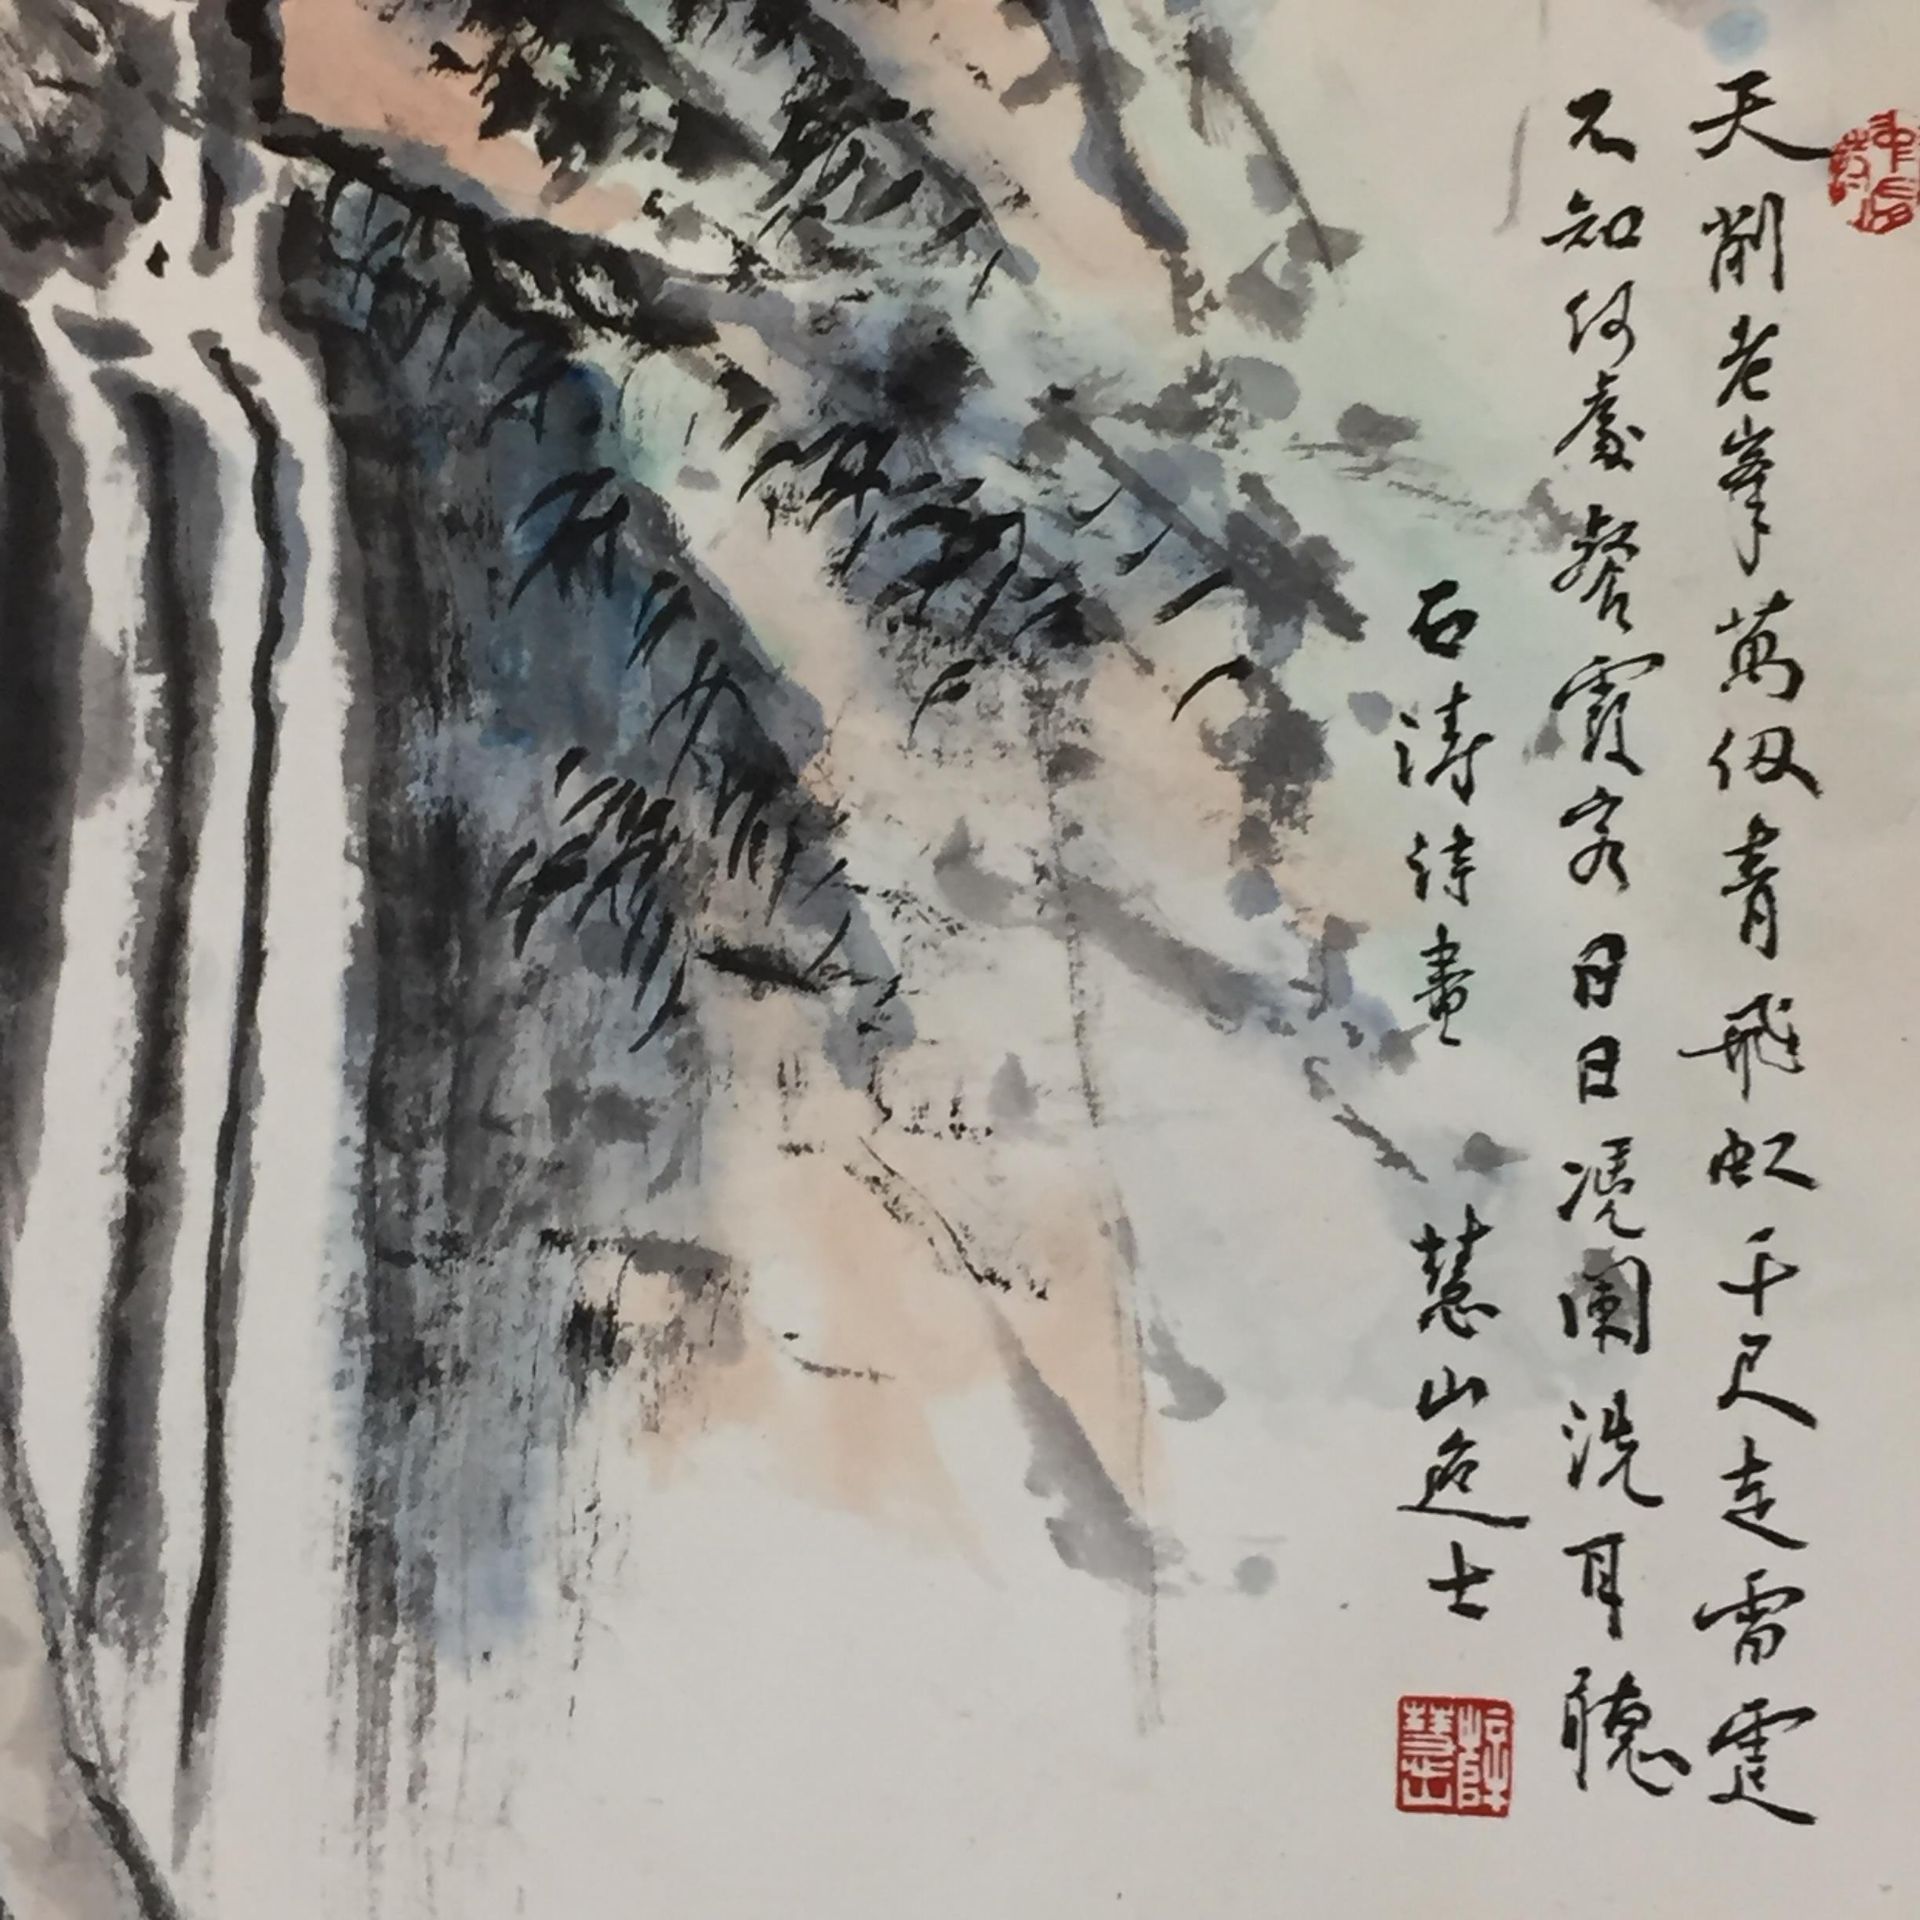 天削老峯萬仭青飛虹千尺走雷霆
不知何處餐霞客日日凭闌洗耳聽
石濤詩畫
慧山逸士